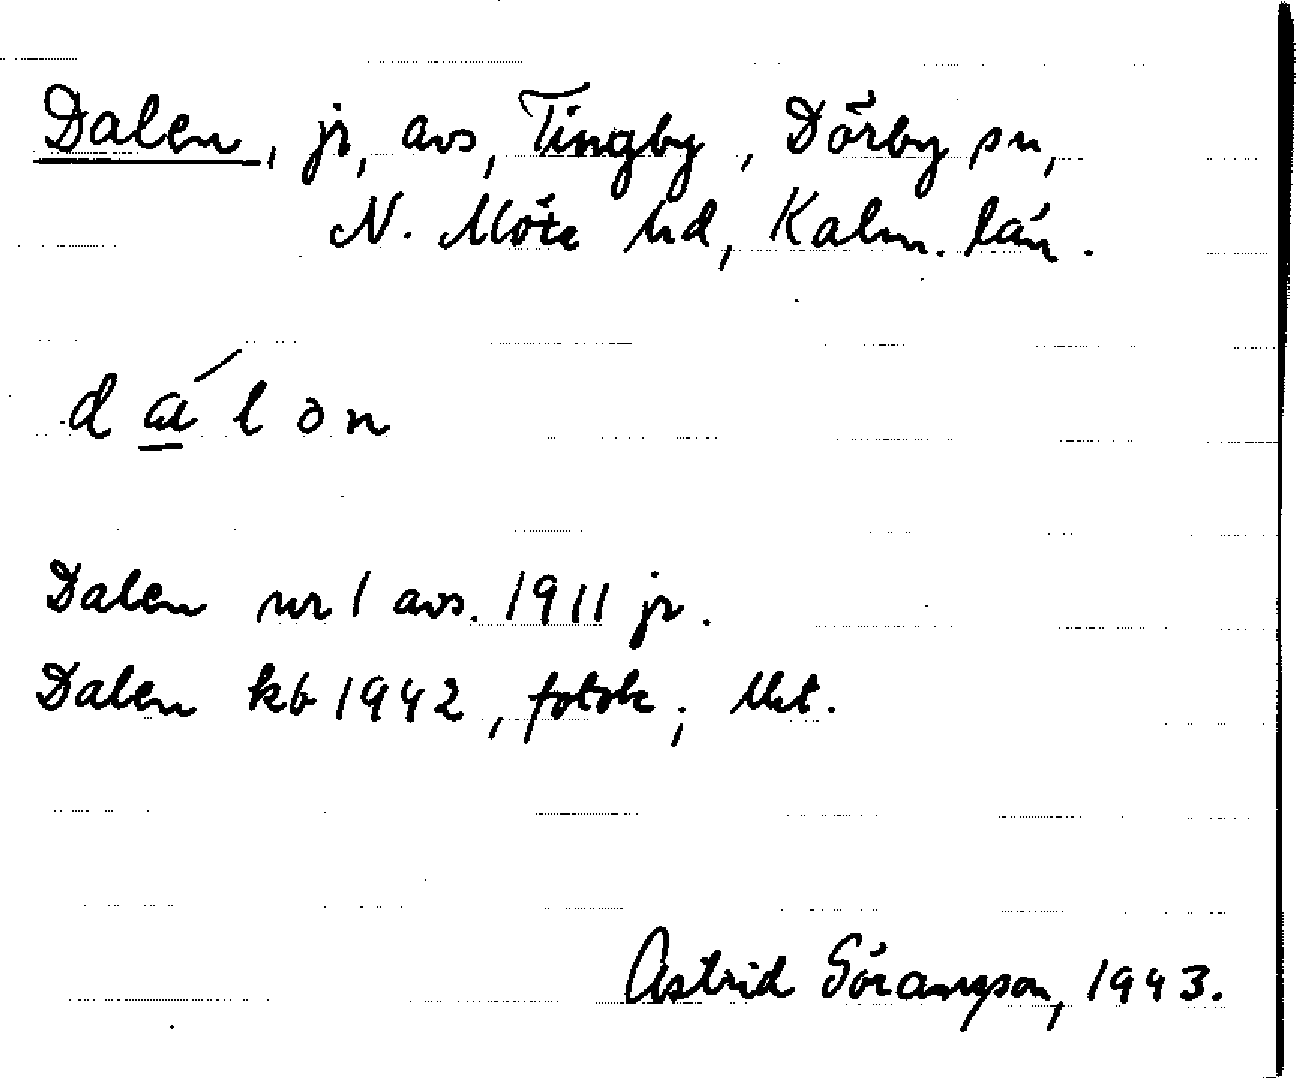 Dalen, jr, avs, Tingby, Dörby sn,
N. Möre hd, Kalm. län.
dɑ́lən
Dalen nr 1 avs. 1911 jr.
Dalen kb 1942, fotok; Ukt.
Astrid Göransson, 1943.